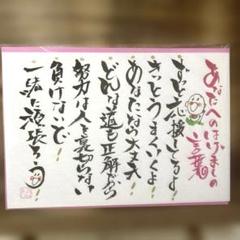 あなたへのはげましの
言葉
ずっと応援してるよ!
きっとうまくいくよ
あなたなら大丈夫
どんな道も正解だから
努力は人を裏切らない
負けないで!
一緒に頑張ろう!